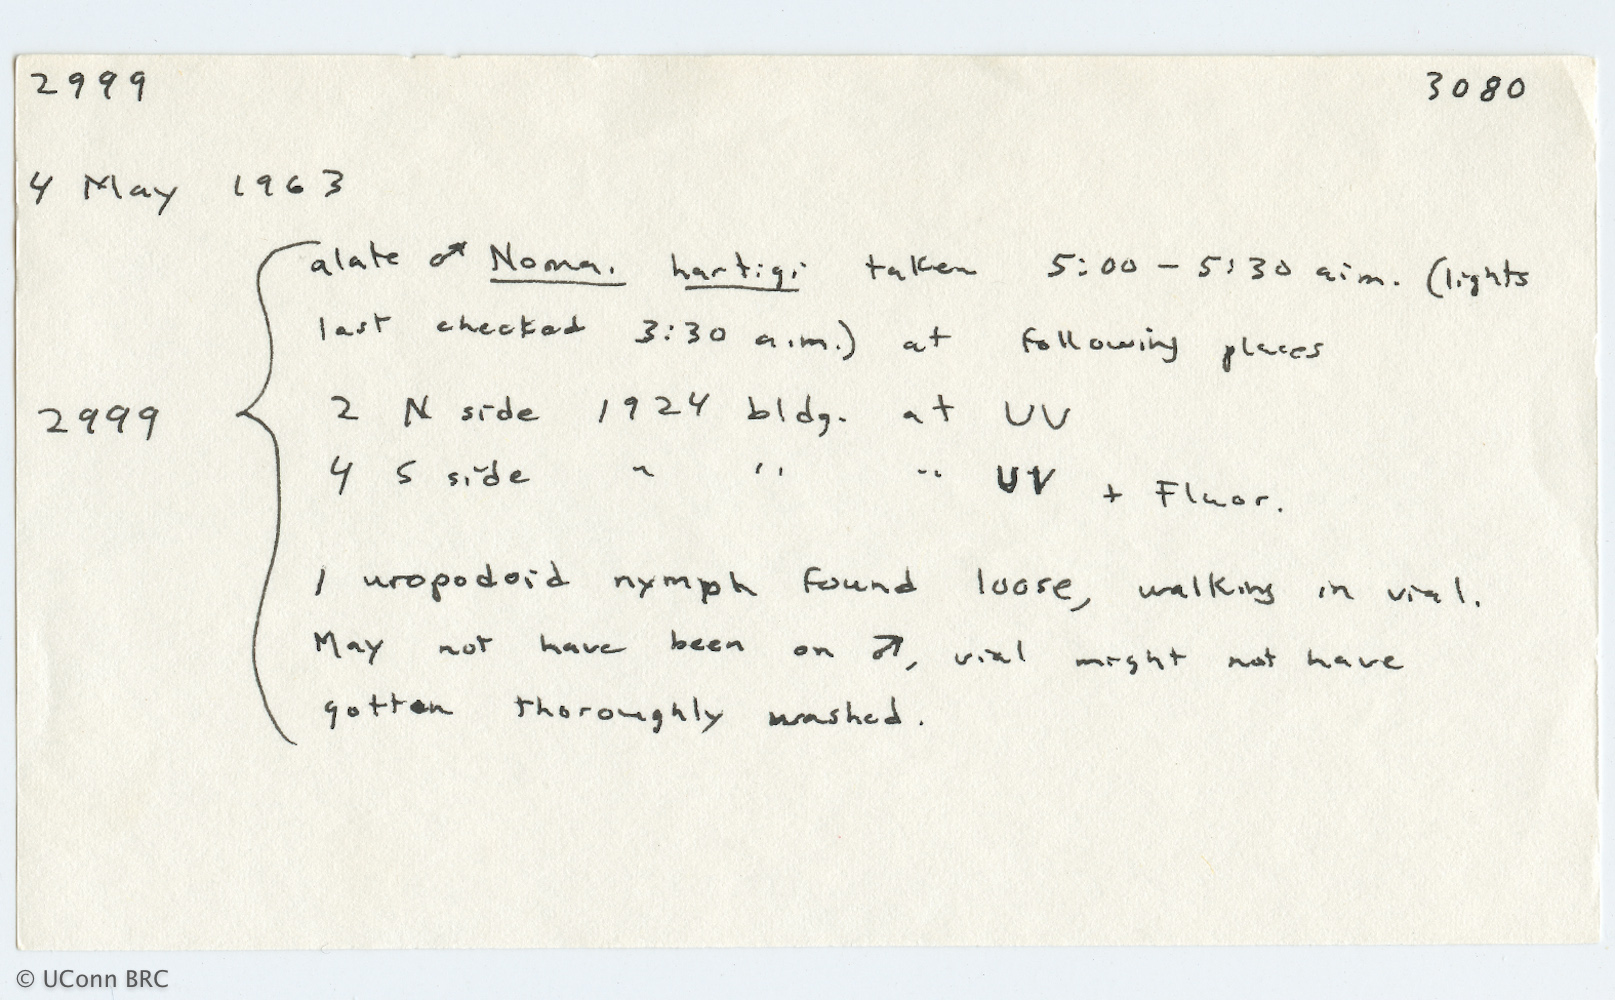 2999 3080
4 May 1963
alate ♂ Noma. hartigi taken 5:00 - 5:30 a.m. (lights
last checked 3:30 a.m.) at following places
2999
2 N side 1924 bldg. at UV
4 S side " " " UV + Fluor.
1 uropodoid nymph found loose, walking in vial.
May not have been on ♂, vial might not have
gotten thoroughly washed.
© UConn BRC